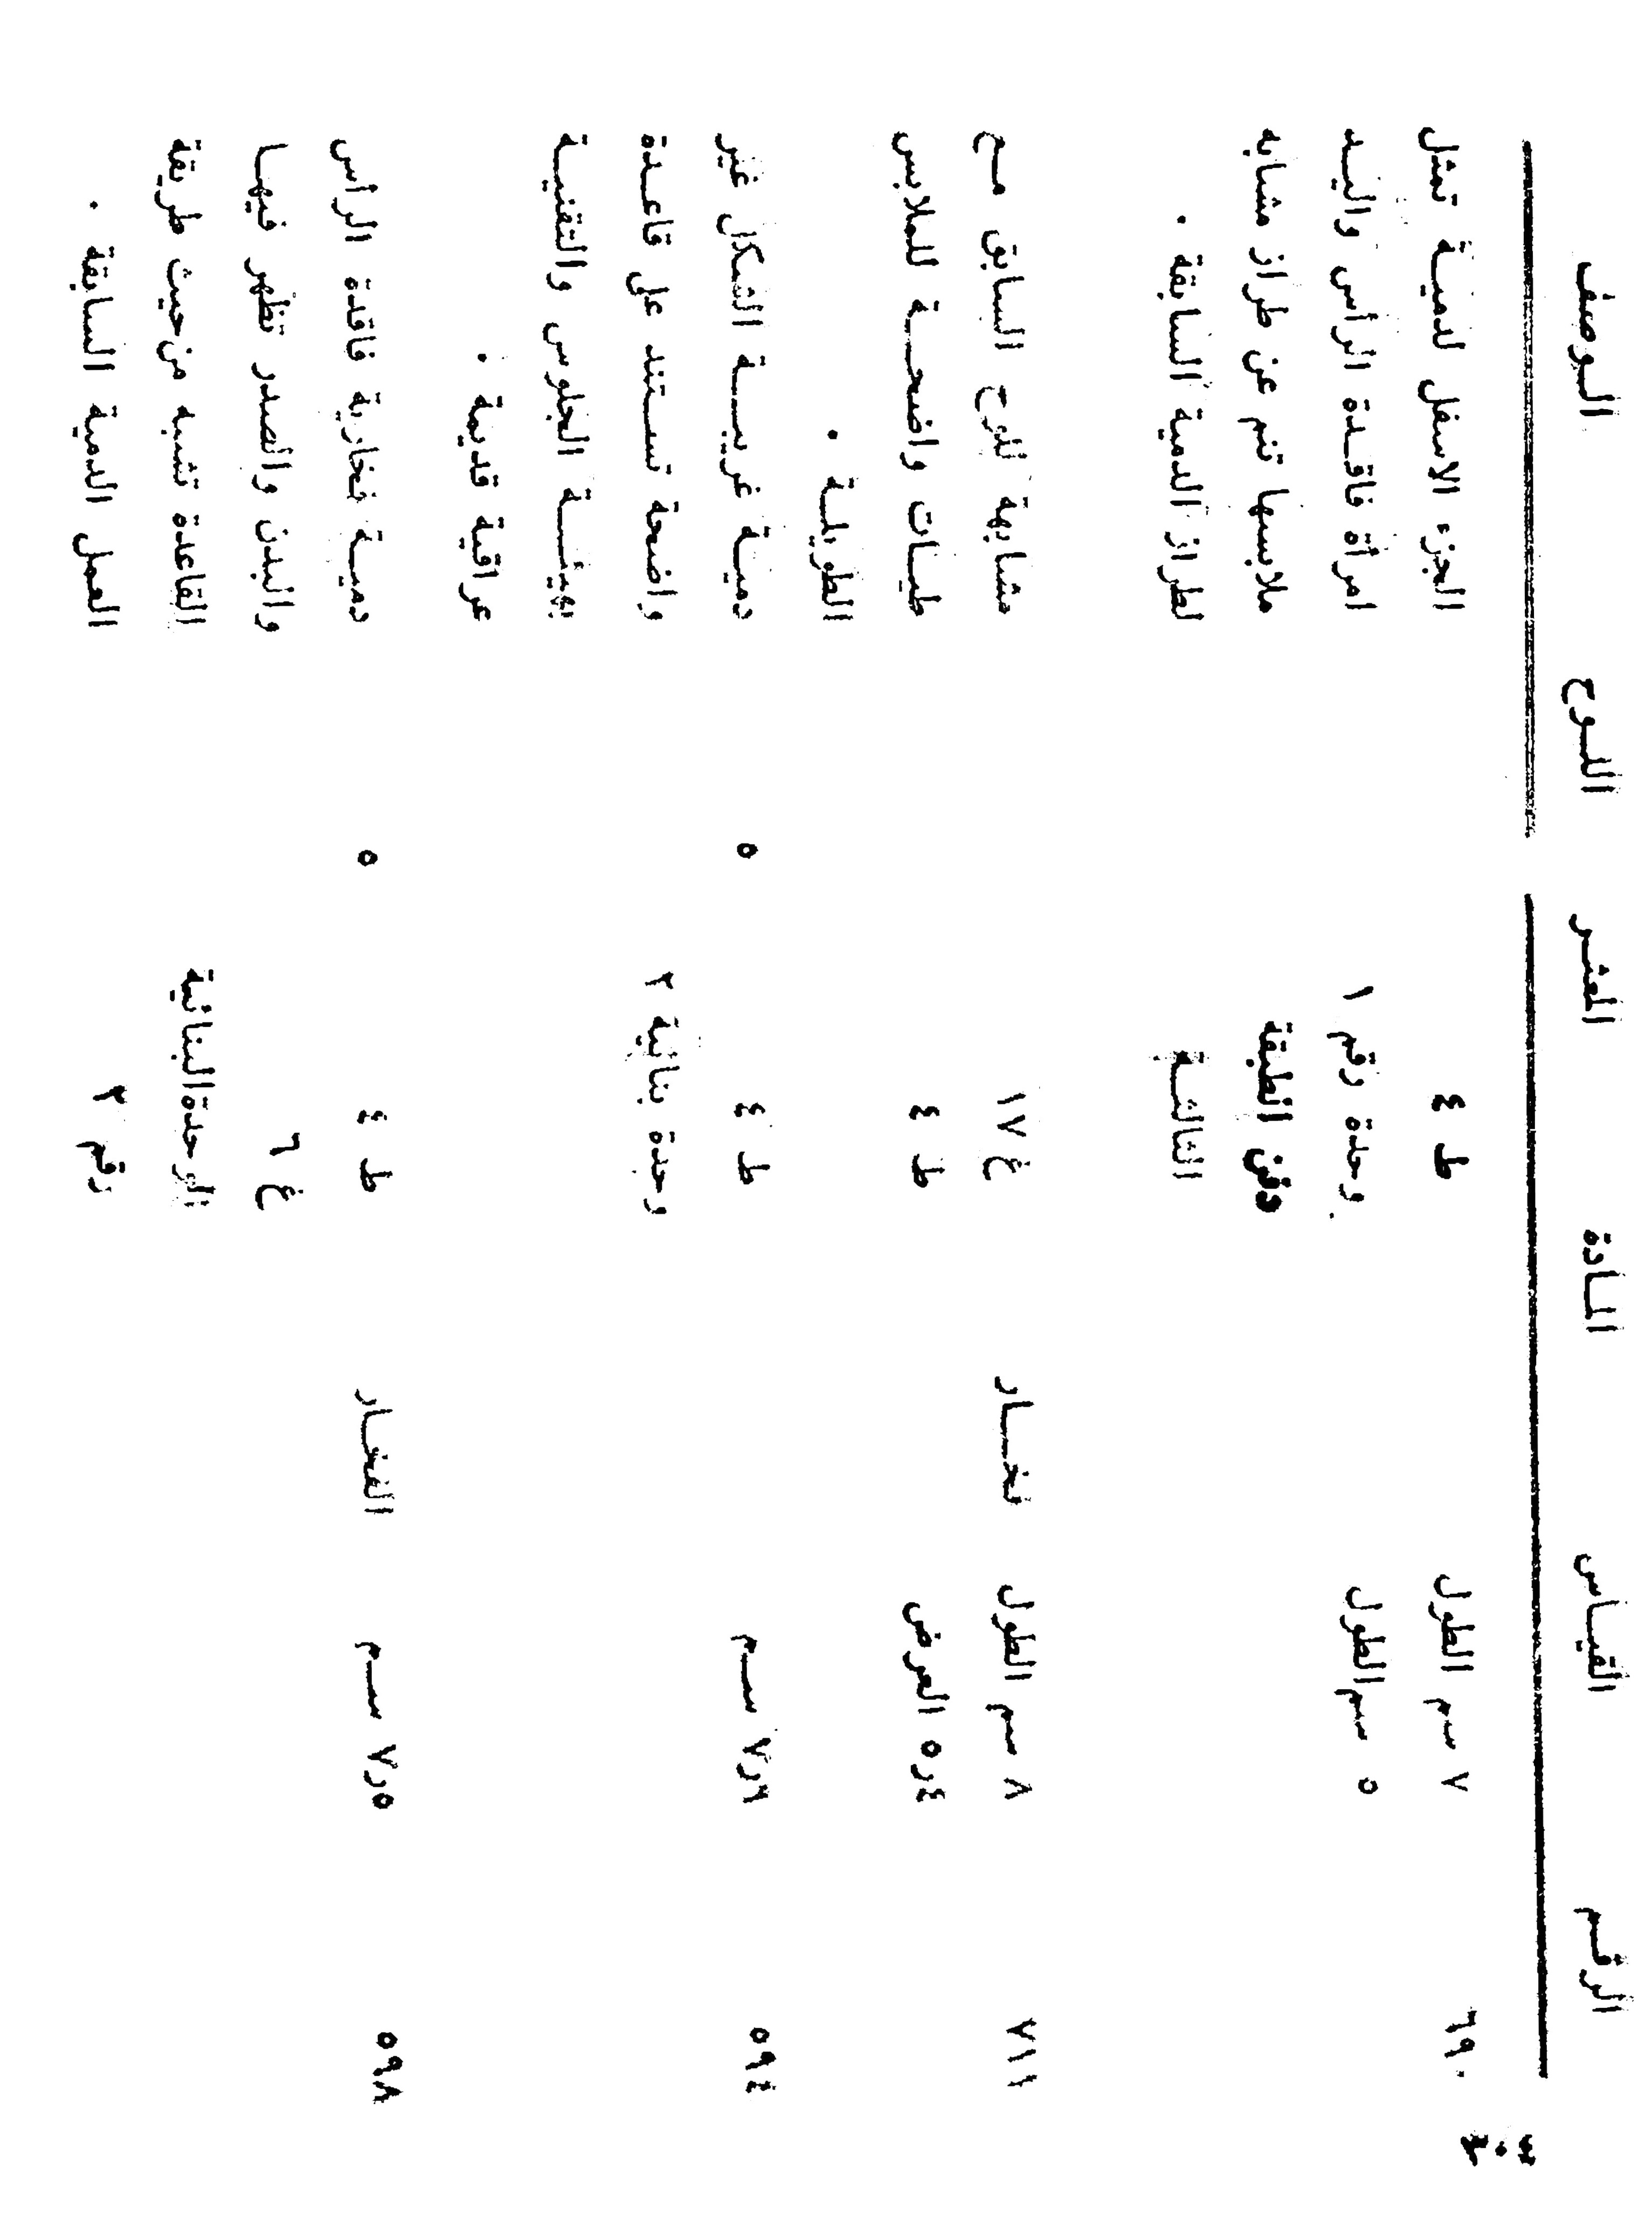 ٣٠٤
الرقم القياس المادة المعثر اللوح الوصف
٦٩٠ ٧ سم الطول ط ٤ الجزء الاسفل لدمية تمثل
٥ سم الطول وحدة رقم ١ امرأة فاقدة الرأس واليد
دفن الطبقة ملابسها تنم عن طراز مشابه
الثالثة لطراز الدمية السابقة .
٧١١ ٨ سم الطول فخار غ ١٧ مشابهة للوح السابق مع
٤ر٥ العرض ط ٤ طيات واضحة للملابس
الطويلة .
٥٩٤ سم ط ٤ ٥ دمية غريبة الشكل غير
وحدة بنائية ٢ واضحة تستند على قاعدة
بهيئة الجلوس والتقنية
عراقية قديمة .
٥٩٨ ٥ر٧ سم الفخار ط ٤ ٥ دمية فخارية فاقدة الرأس
غ ٦ والبدن والصدر تظهر فيها
الوحدة البنائية القاعدة تشبه من حيث طريقة
رقم ٢ العمل الدمية السابقة .